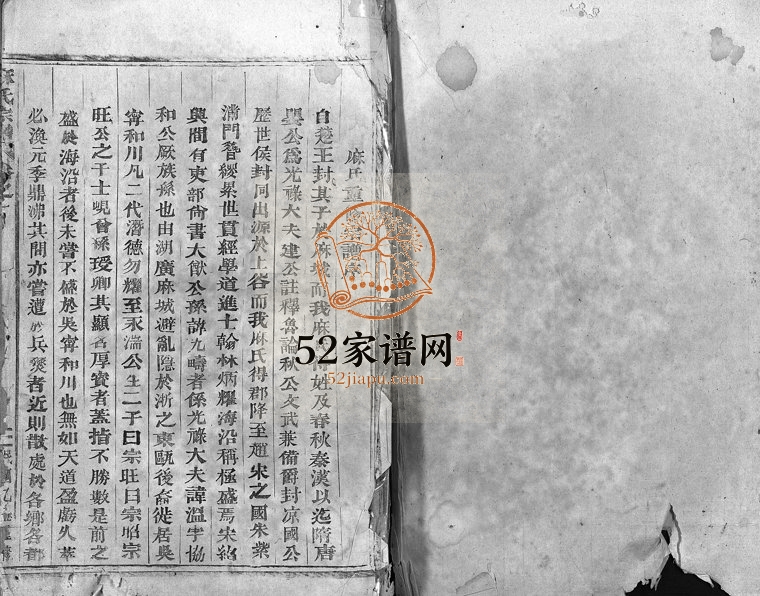 麻氏重
自楚王封其子於麻城而我麻 得姓及春秋秦漢以迄隋唐
公爲光祿大夫建公註釋魯論秋公文武兼備爵封凉國公
歷世侯封同出源於上谷而我麻氏得郡降至趙宋之國朱紫
滿門簪纓累世貫經學道進士翰林炳耀海沿稱極盛焉宋紹
興間有吏部尙書大猷公孫諱九疇者係光祿大夫諱溫字協
和公厥族孫也由湖廣麻城避亂隱於浙之東甌後裔徙居吳
寧和川凡二代潛德勿耀至永 公生二子曰宗旺曰宗昭宗
旺公之子士晛曾孫 卿其顯名厚實者蓋指不勝數是前之
盛於海沿者後未嘗不盛於吳寧和川也無如天道盈虧久萃
必渙元季鼎沸其間亦嘗遭於兵燹者近則散處於各鄉各都
52家谱网
52jiapu.com